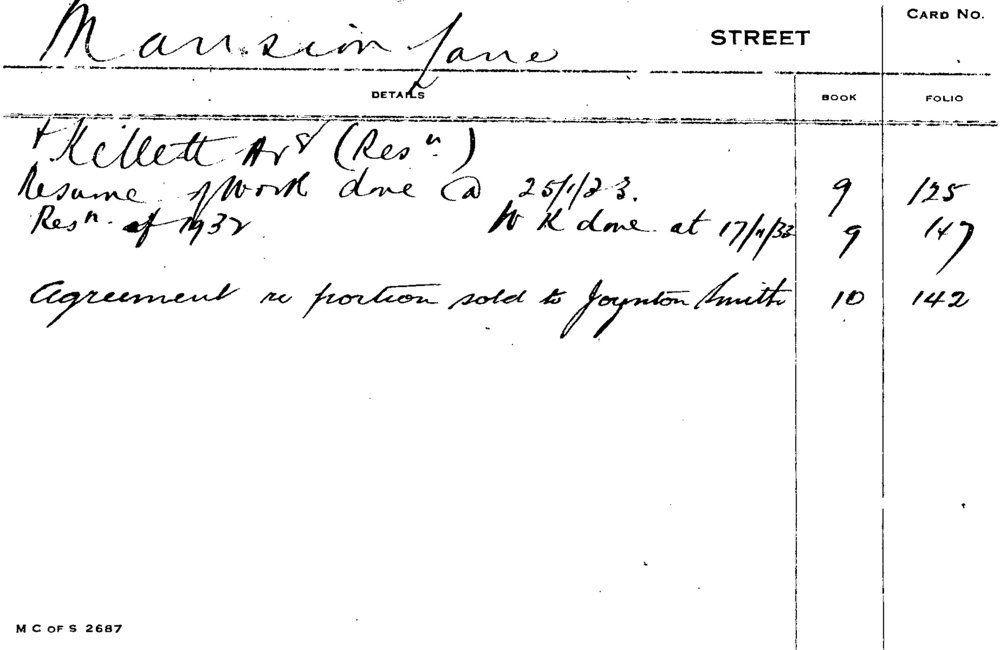 CARD NO.
Mansion Lane STREET
DETAILS BOOK FOLIO
+ Killett Ave (Resn.)
Resume of Work done @ 25/1/23. 9 125
Resn. of 1932 Wk done at 17/11/33 9 147
Agreement re portion sold to Joynton Smith 10 142
M C OF S 2687